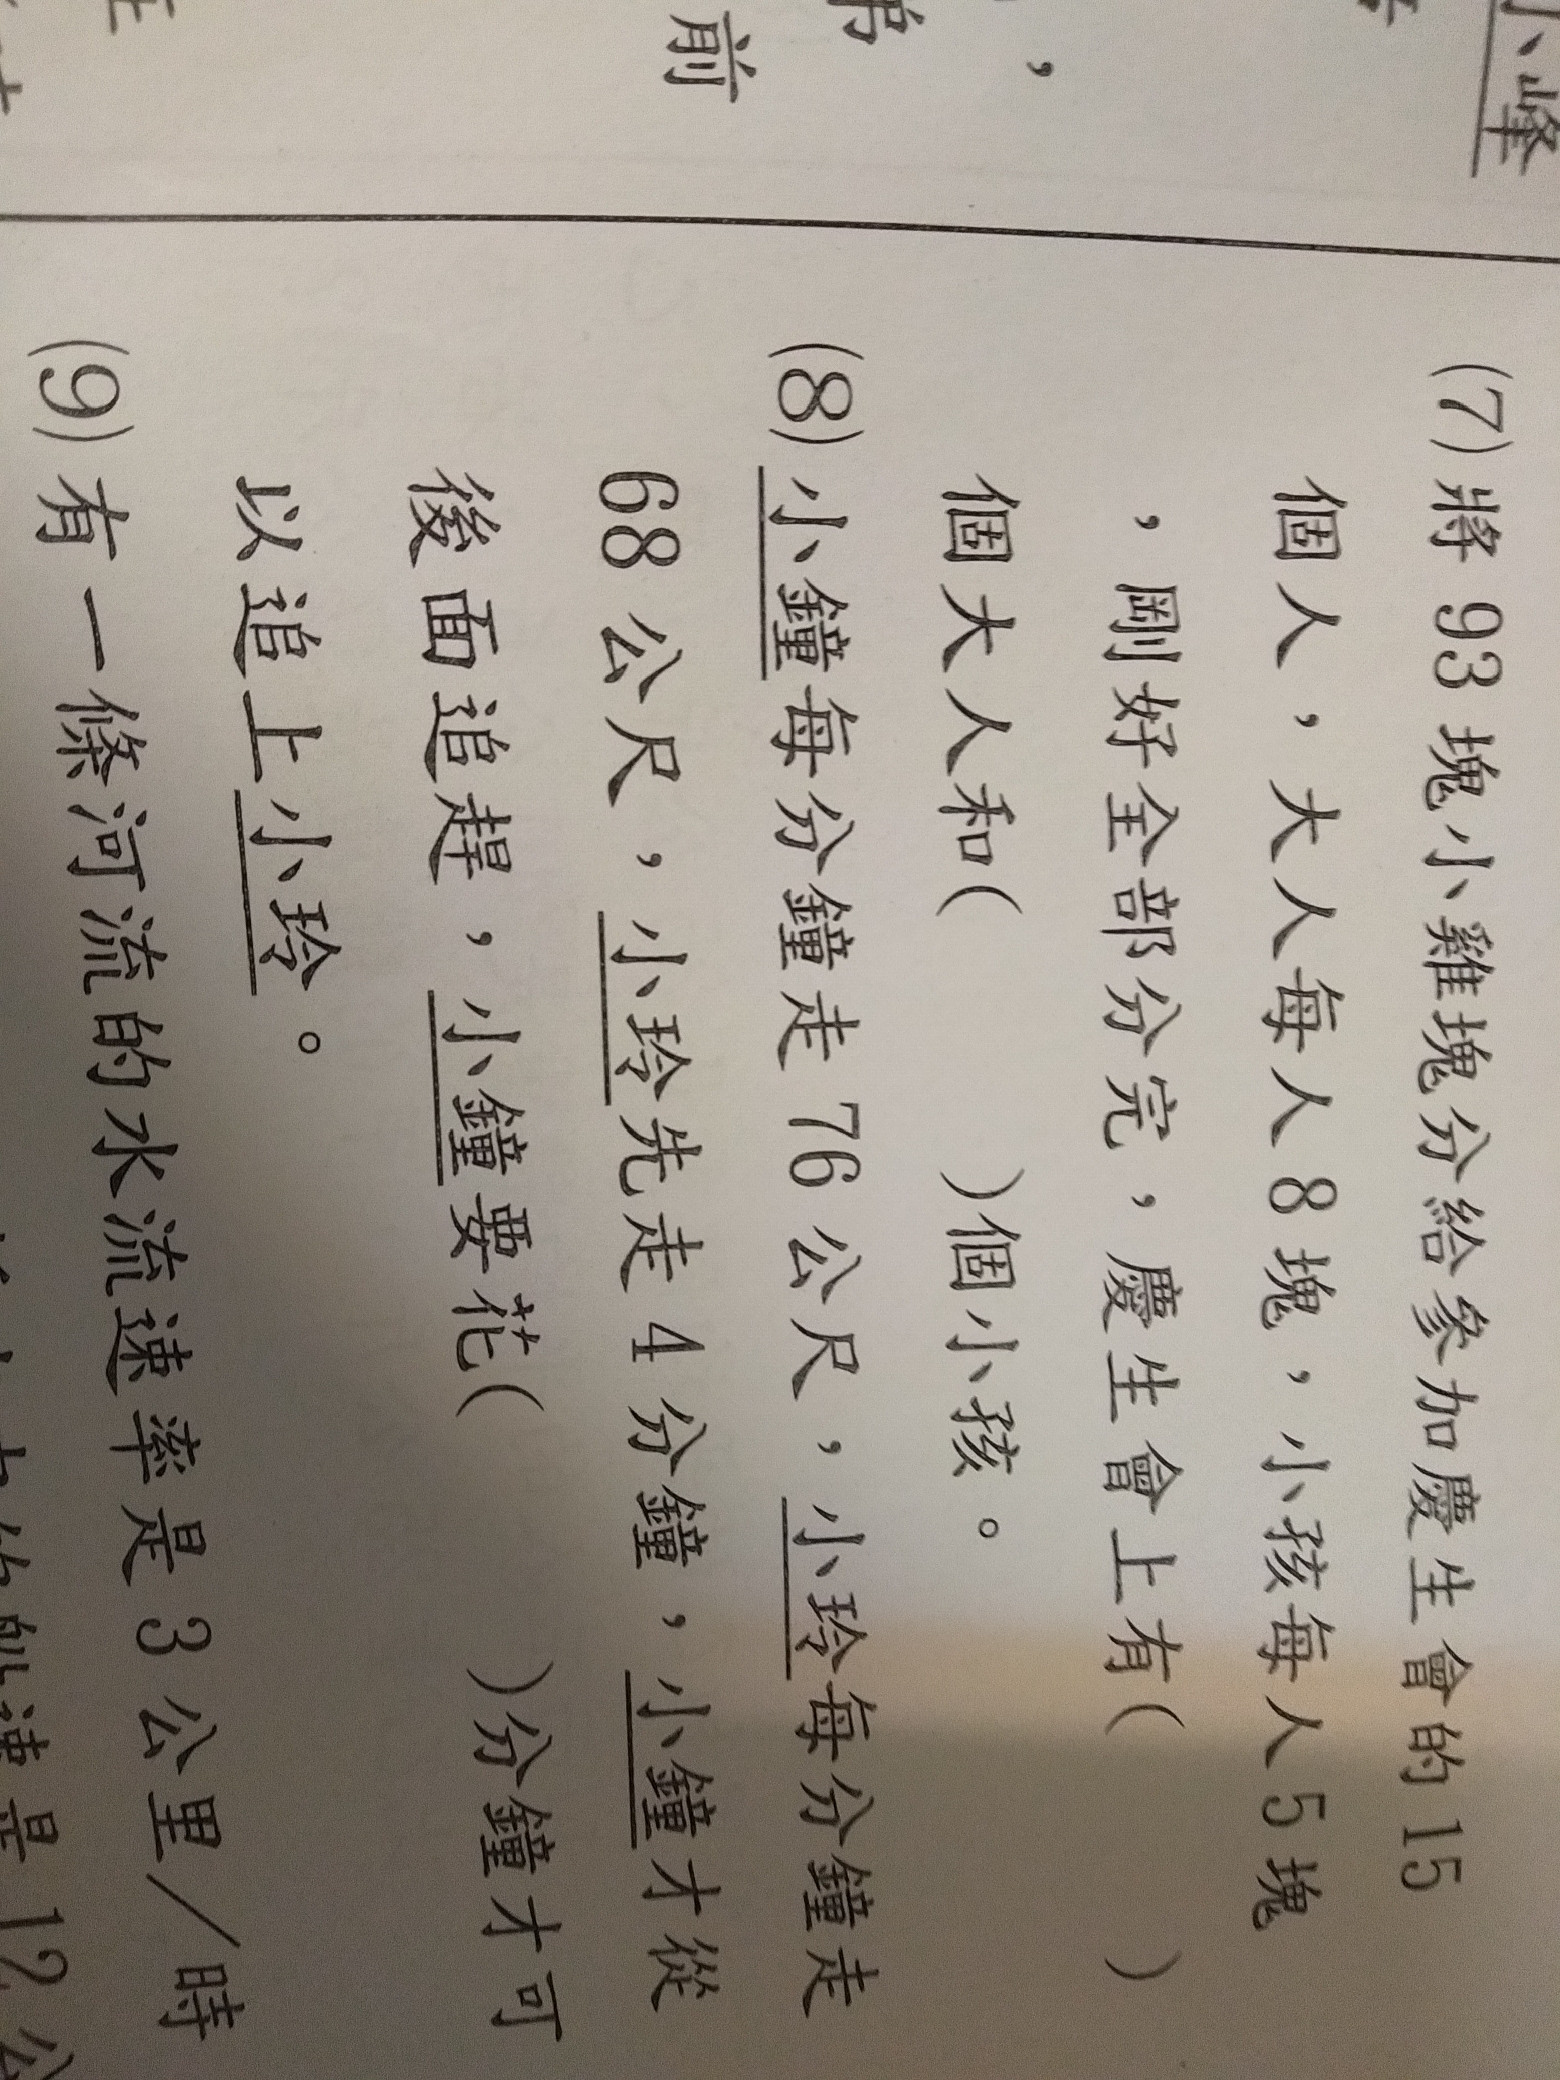 小峰
，
前
(7)將 93 塊小雞塊分給參加慶生會的 15
個人，大人每人 8 塊，小孩每人 5 塊
，剛好全部分完，慶生會上有( )
個大人和( )個小孩。
(8)小鐘每分鐘走 76 公尺，小玲每分鐘走
68 公尺，小玲先走 4 分鐘，小鐘才從
後面追趕，小鐘要花( )分鐘才可
以追上小玲。
(9)有一條河流的水流速率是 3 公里／時
是 12 公